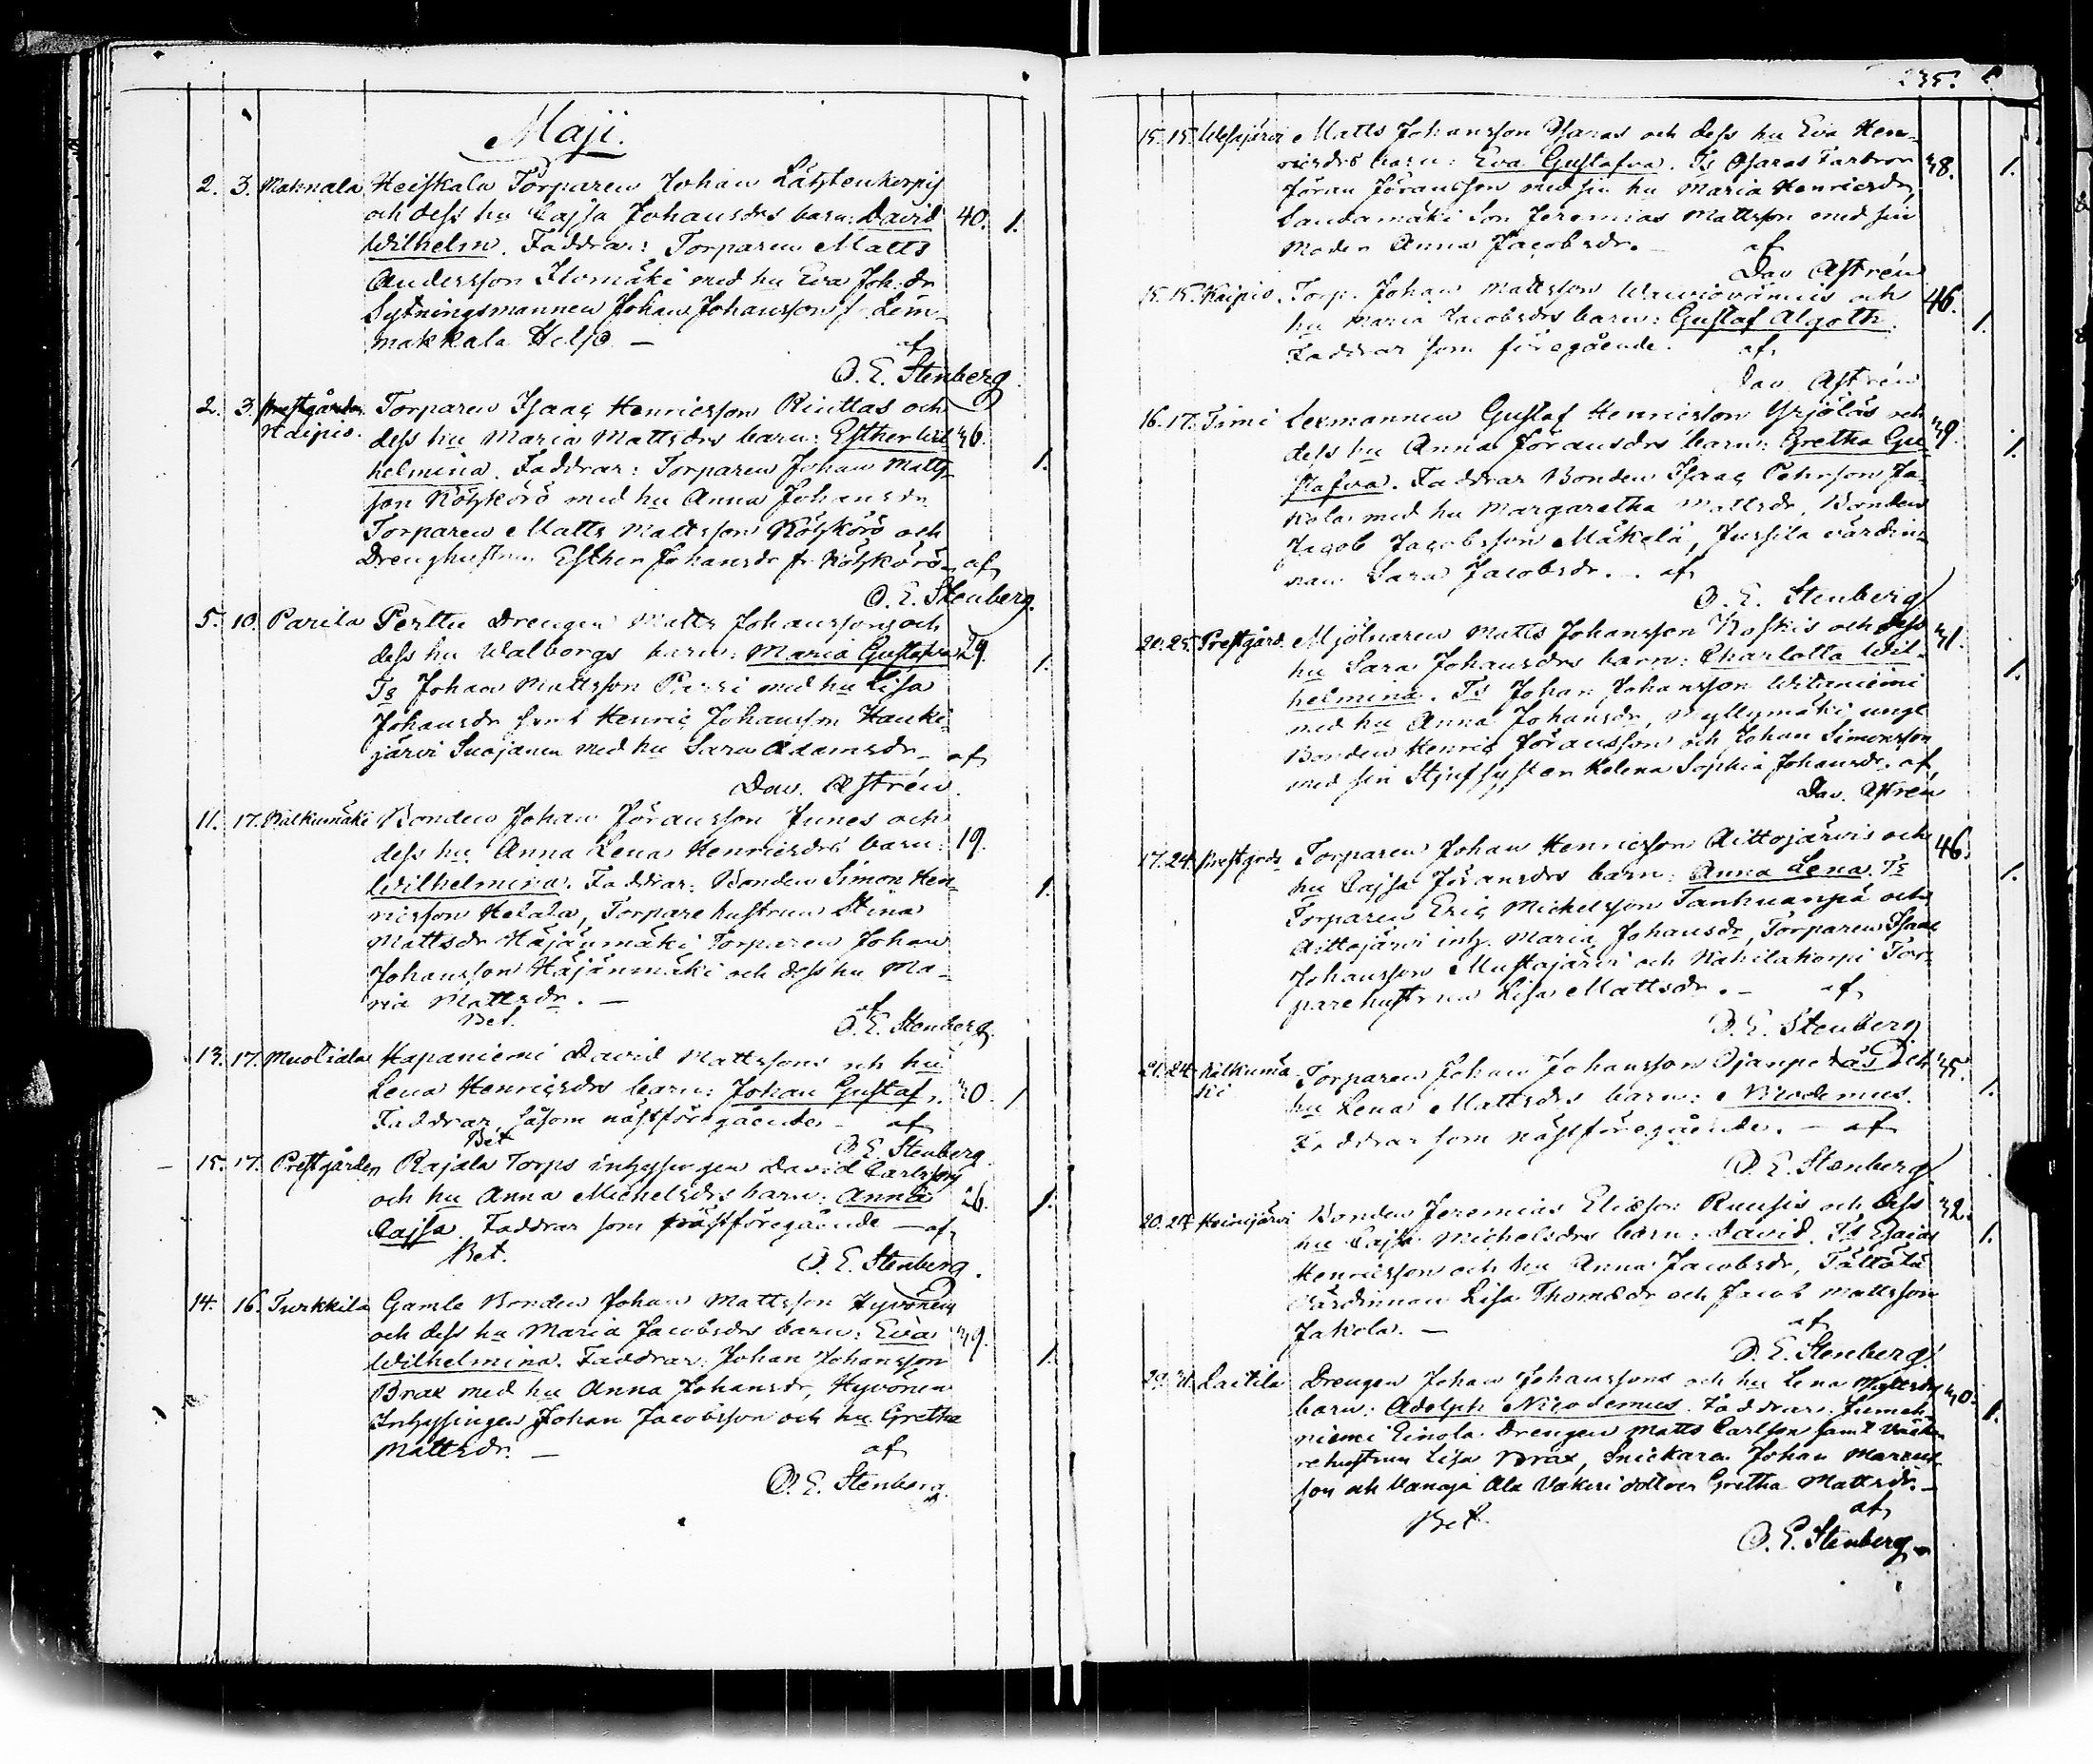 Maji.
2. 3. Maknala Heiskala Torparen Johan Lätztenkorpis
och dess hu Cajsa Johansdrs barn: David 40. 1.
Wilhelm. Faddrar: Torparen Matts
Andersson Ilomäki med hu Eva Joh:dr
Sytningsmannen Johan Johansson f Lem-
makkala
af
O. E. Stenberg
2. 3. Prestgården Torparen Isaac Henricsson Rinttas och
Kaipis. dess hu Maria Mattsdrs barn: Esther Wil 36.
helmina. Faddrar: Torparen Johan Matts 1.
son Kötskörö med hu Anna Johansdr
Torparen Matts Mattsson Kötskörö och
Drenghustrun Esther Johansdr fr Kötskörö af
O. E. Stenberg.
5. 10. Parila Perttu Drengen Matts Johanssons och
dess hu Walborgs barn: Maria Gustafva 29. 1.
Ts Johan Mattsson med hu Lisa
Johansdr samt Henric Johansson Hauki
järvi Suojanen med hu Sara Adamsdr - af
Dav. Astrén.
11. 17. Kälkumäki Bonden Johan Jöransson Junes och
dess hu Anna Lena Henricsdrs barn: 19.
Wilhelmina. Faddrar: Bonden Simon Hen- 1.
ricsson Hetala, Torparehustrun Stina
Mattsdr Häjänmäki Torparen Johan
Johansson Häjänmäki och dess hu Ma-
ria Mattsdr. -
Bet. af
O. E. Stenberg.
13. 17. Muotiala Hapaniemi David Mattssons och hu
Lena Henricsdrs barn: Johan Gustaf. 30. 1
Faddrar, såsom nästföregående - af
Bet O. E. Stenberg.
15. 17. Prestgården Rajala Torps inhysingen David Carlssons
och hu Anna Michelsdrs barn: Anna 26. 1.
Cajsa. Faddrar som nästföregående - af
Bet. O. E. Stenberg.
14. 16. Turkkila Gamle Bonden Johan Mattsson Hyvönens
och dess hu Maria Jacobsdrs barn: Eva 39.
Wilhelmina. Faddrar: Johan Johansson 1.
Brax med hu Anna Johansdr, Hyvönen
Inhysingen Johan Jacobsson och hu Gretha
Mattsdr. - af
O. E. Stenberg.
235.
15. 15. Wesajärvi Matts Johansson Osaras och dess hu Eva Hen-
ricsdrs barn: Eva Gustafva. Ts Osaras Farbror 38. 1.
Jöran Jöransson med sin hu Maria Henricsdr,
Saudamäki Son Jeremias Mattsson med sin
Moder Anna Jacobsdr. - af
Dav Astrén
15. 15. Kaipis. Torp. Johan Mattsson och 46.
hu Maria Jacobsdrs barn: Gustaf Algoth. 1.
Faddrar som föregående. af
Dav Astrén
16. 17. Timi Lexmannen Gustaf Henricsson Yrjölas och 39.
dess hu Anna Jöransdrs barn: Gretha Gu 1.
stafva. Faddrar Bonden Isaac Pehrsson Ja-
kola med hu Margaretha Mattsdr, Bonden
Jacob Jacobsson Mäkelä, Jussila värdin-
nan Sara Jacobsdr. - af
O. E. Stenberg
20. 25. Prestgård. Mjölnaren Matts Johansson Koskis och dess 31.
hu Sara Johansdrs barn: Charlotta Wil- 1.
helmina. Ts Johan Johansson Witaniemi
med hu Anna Johansdr, Myllymäki ungl
Bonden Henric Jöransson och Johan Simonsson
med sin Stjufsyster Helena Sophia Johansdr. af
Dav. Astrén
17. 24. Prestgrds Torparen Johan Henricsson Aittojärvis och 46.
hu Cajsa Jöransdrs barn: Anna Lena. Ts 1.
Torparen Eric Michelsson Tanhuanpä och
Aittojärvi inh. Maria Johansdr, Torparen Isaac
Johansson Mustajärvi och Kahilakorpi Tor-
parehustrun Lisa Mattsdr. - af
O. E. Stenberg
21. 24. Kälkumä Torparen Johan Johansson Ojanperäs och 35.
ki hu Lena Mattsdrs barn: Nicodemus. 1.
Faddrar som nästföregående. - af
O. E. Stenberg
20. 24. Heinijärvi Bonden Jeremias Eliæson Ruusis och dess 32.
hu Cajsa Michelsdrs barn: David. Ts Esaias 1.
Henricsson och hu Anna Jacobsdr, Tättälä
Värdinnan Lisa Thomædr och Jacob Mattsson
Jakola. - af
O. E. Stenberg.
29. 31. Laitila Drengen Johan Johanssons och hu Lena Mattsdrs 30.
barn: Adolph Nicodemus. Faddrar: Jumek- 1.
niemi Einola Drengen Matts Carlsson samt
rehustrun Lisa Brax, Snickaren Johan Marcus-
son och Vanaja Ala Vakeri dotter Gretha Mattsdr. -
Bet. af
O. E. Stenberg